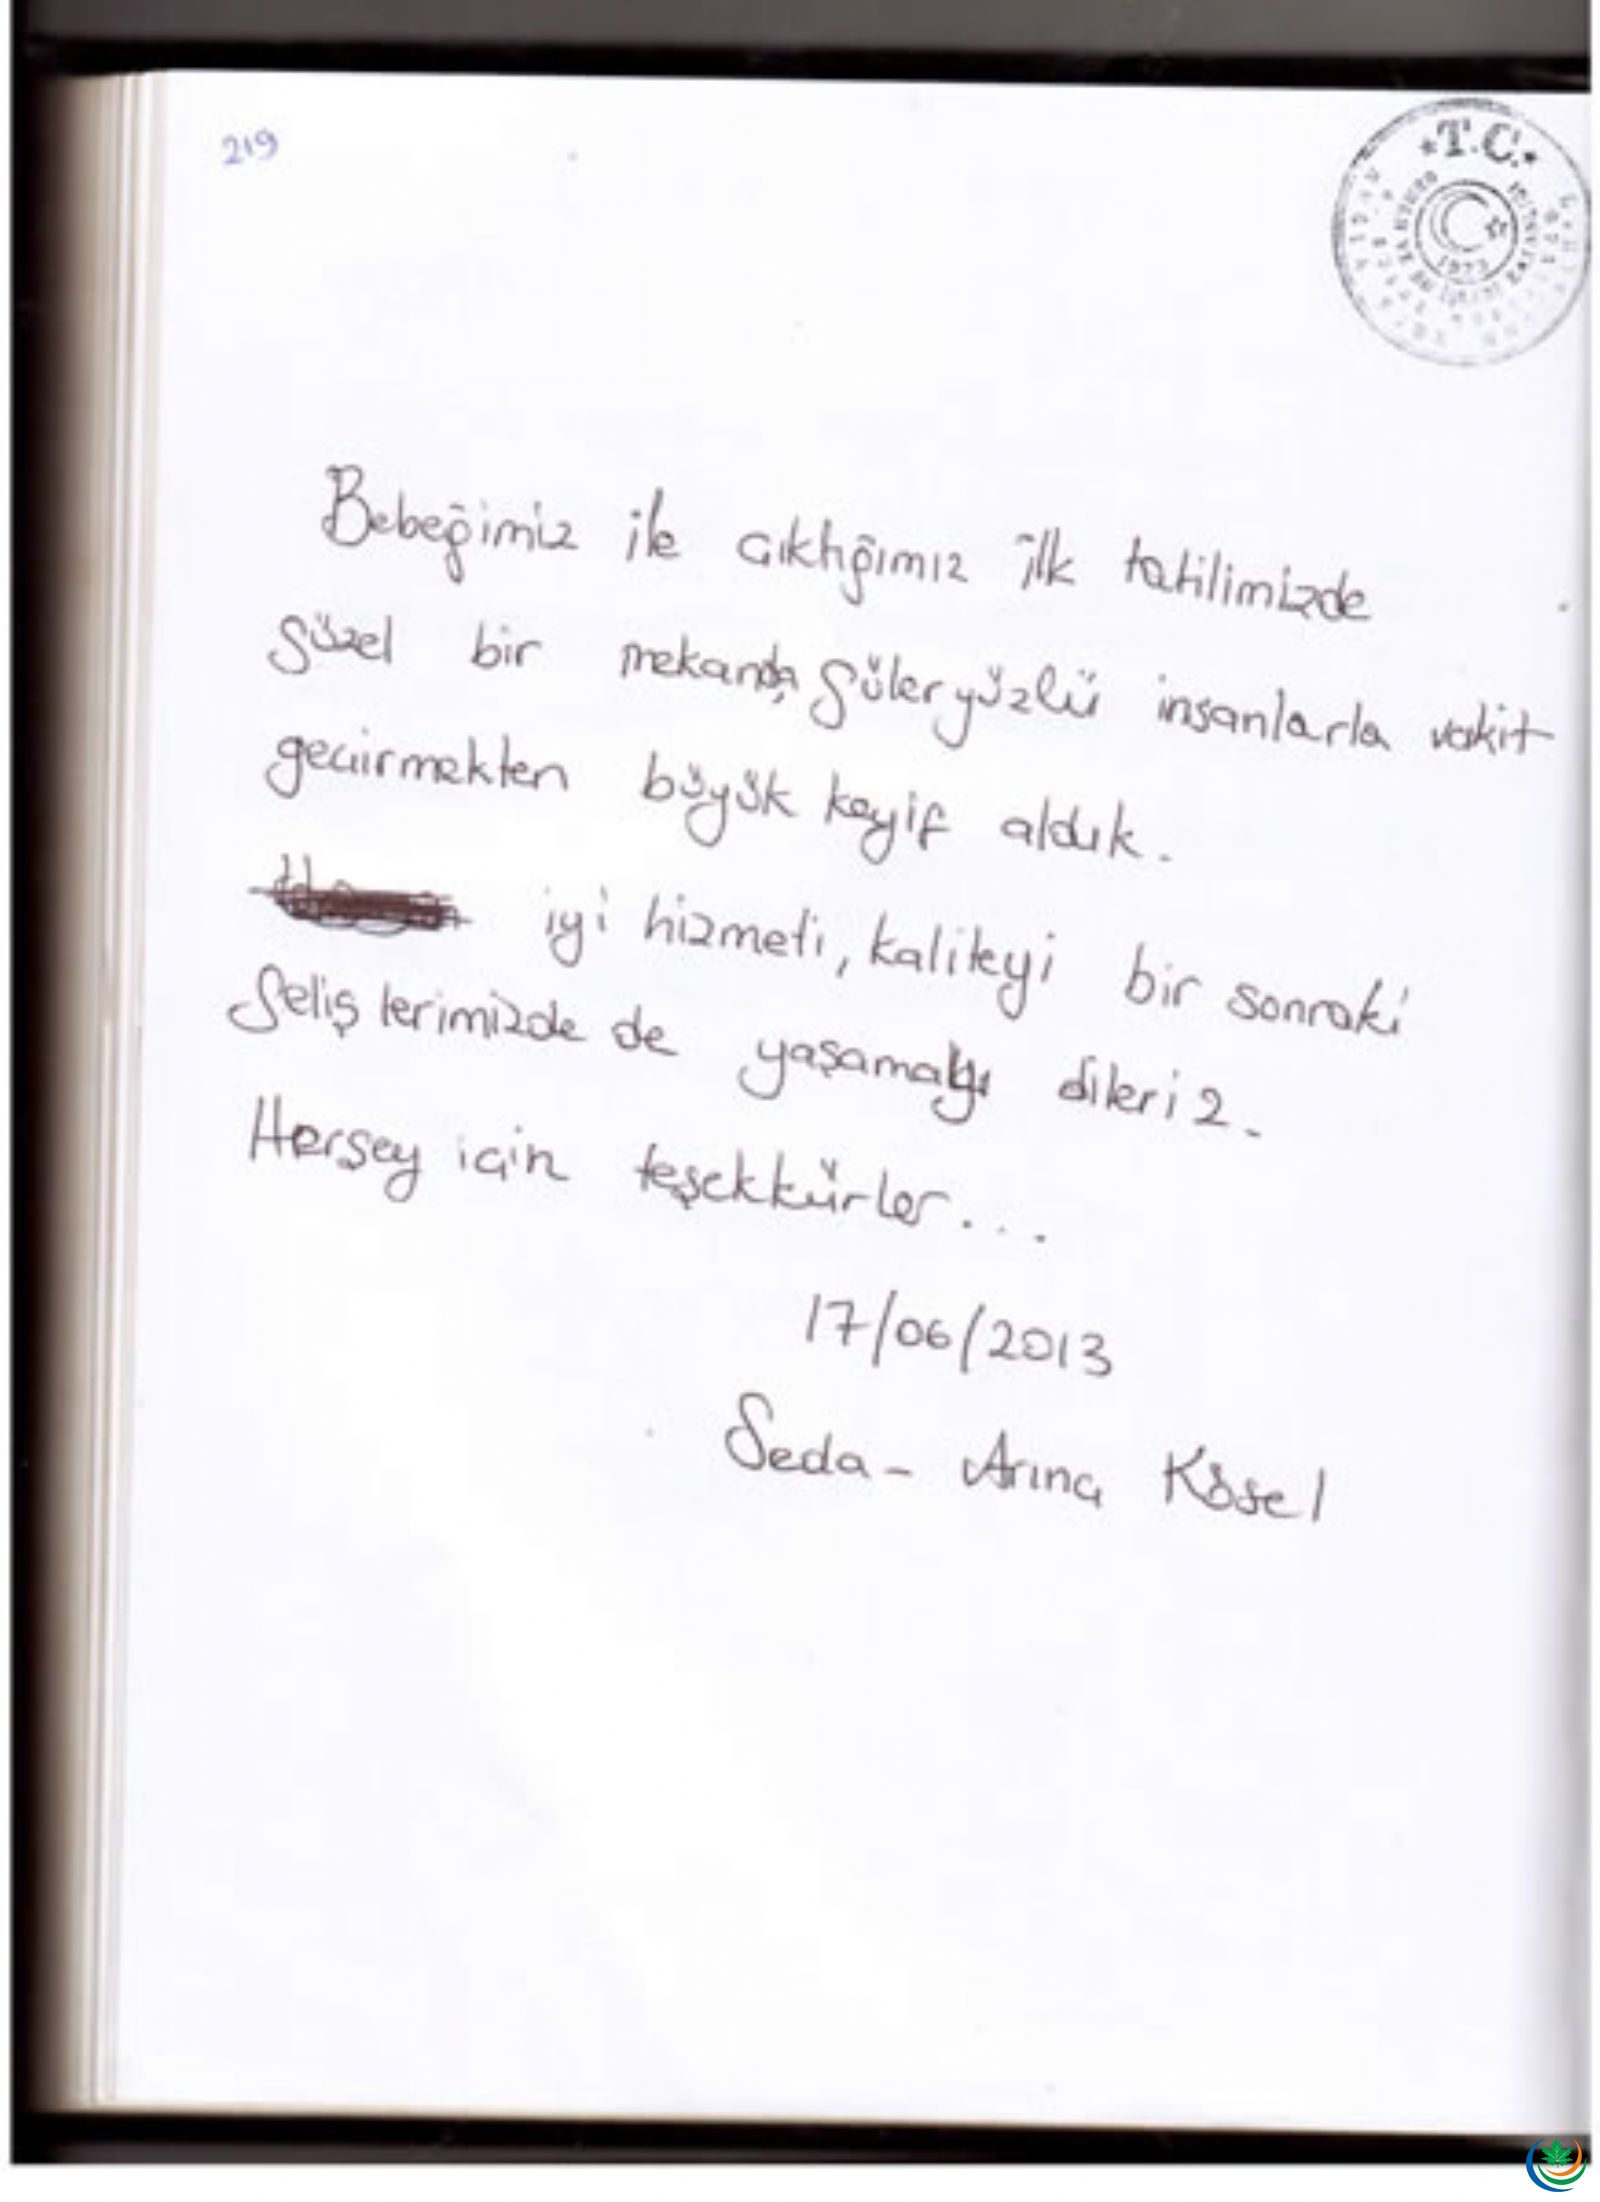 219
T.C.
1973
Bebeğimiz ile çıktığımız ilk tatilimizde
güzel bir mekanda, güleryüzlü insanlarla vakit
geçirmekten büyük keyif aldık.
iyi hizmeti, kaliteyi bir sonraki
gelişlerimizde de yaşamayı dileriz.
Herşey için teşekkürler...
17/06/2013
Seda - Arına Kösel